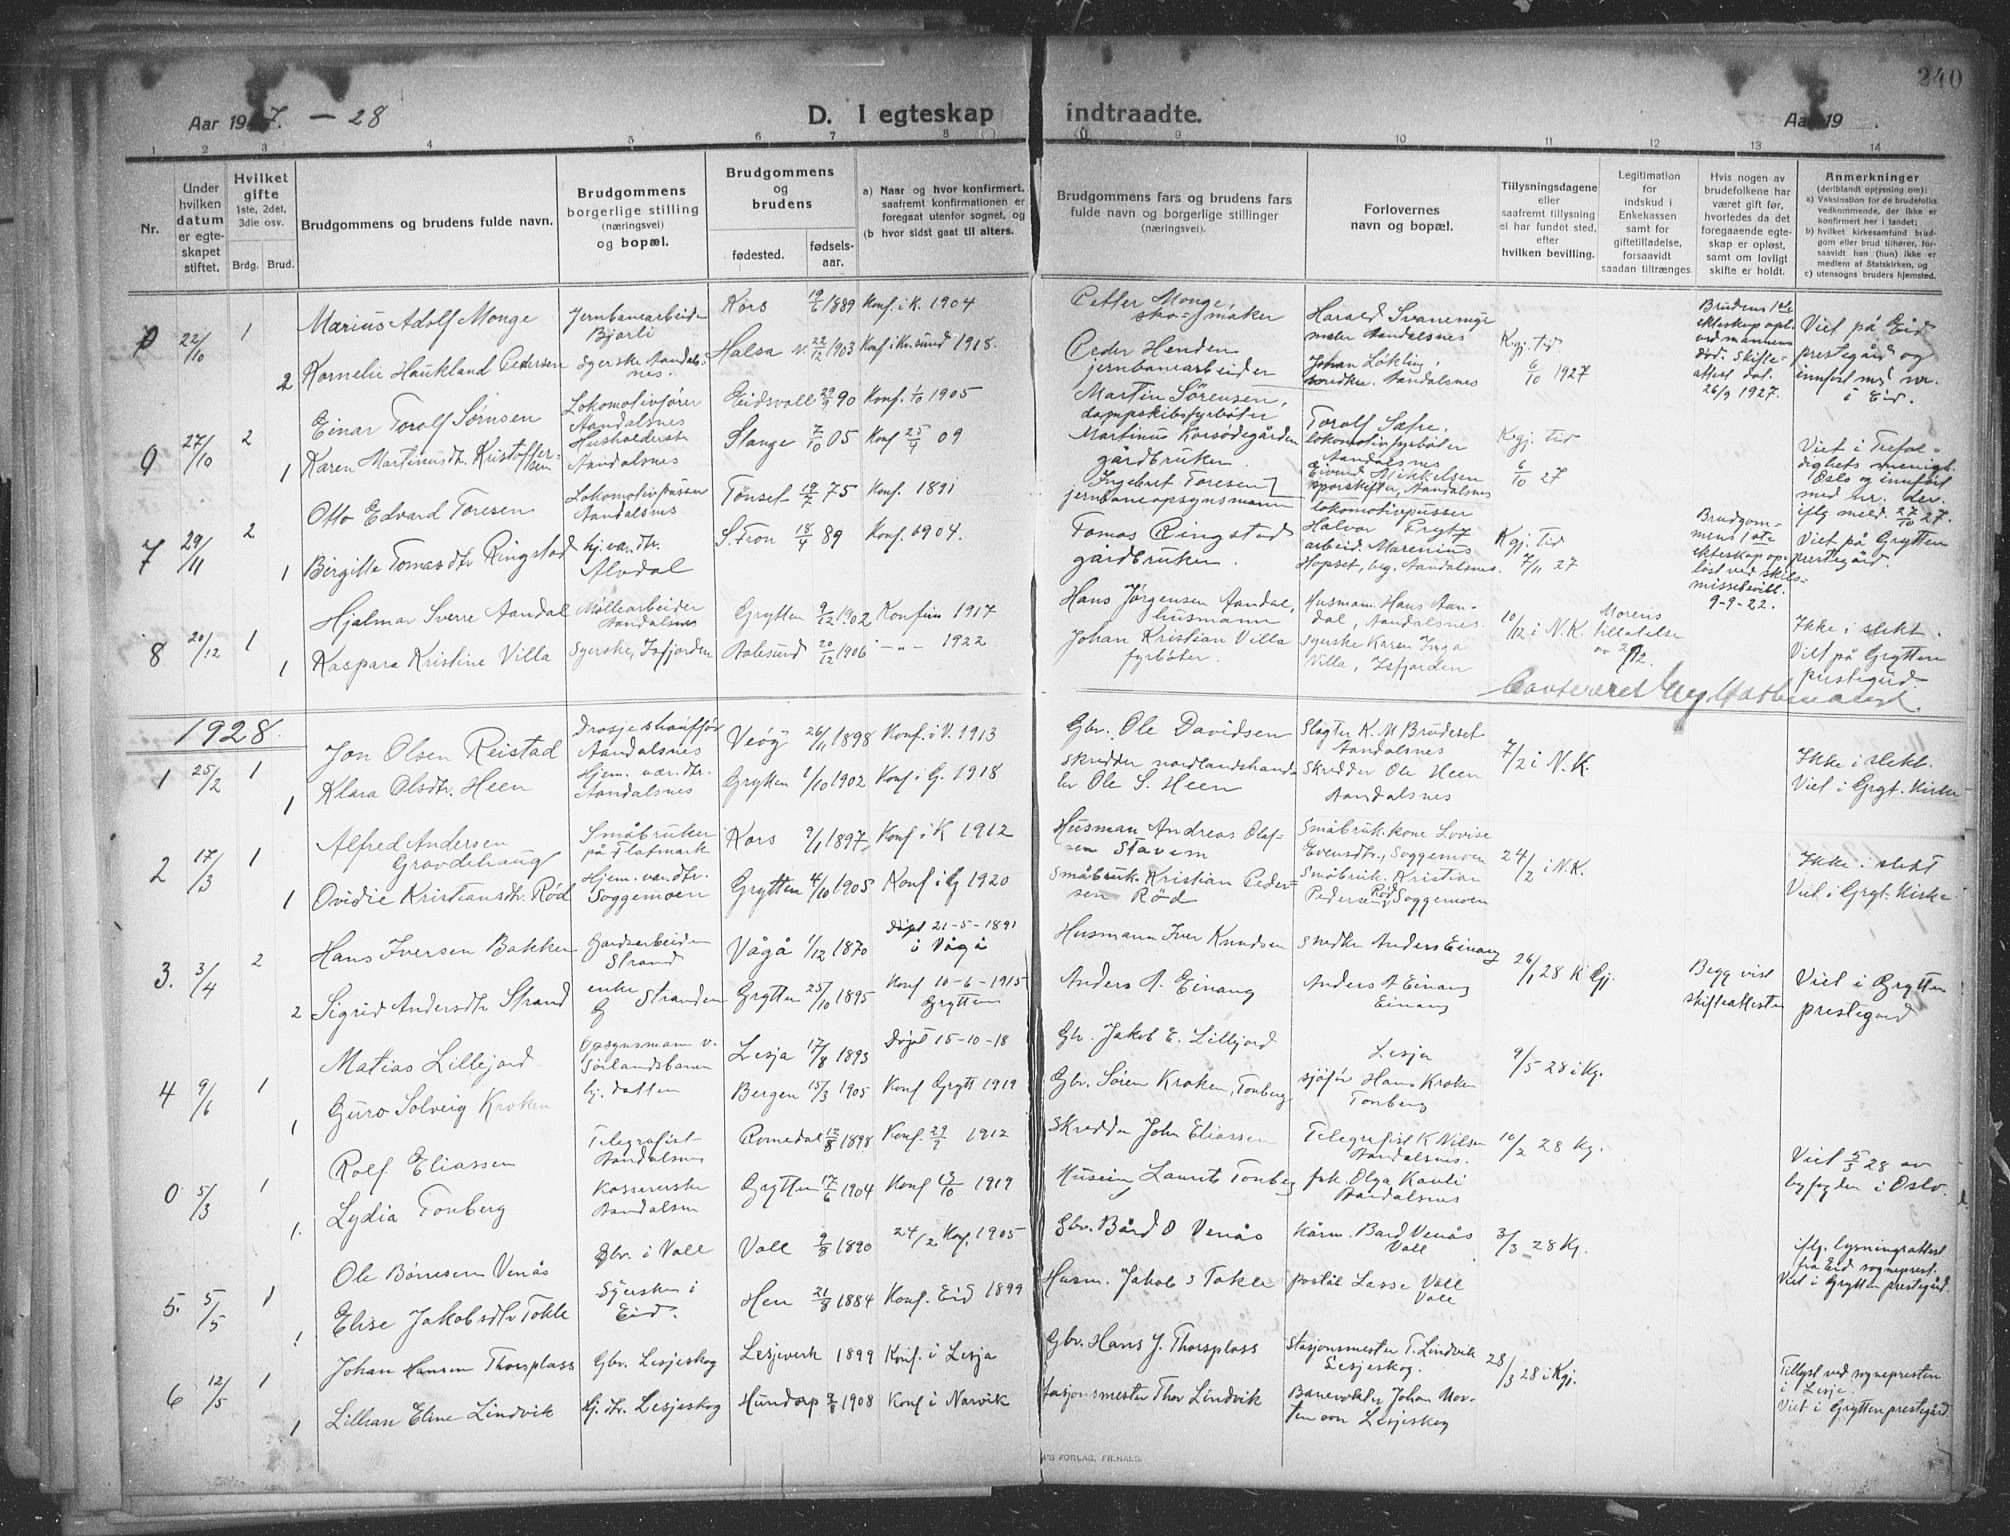 240
Aar 1927. — 28
D. I egteskap indtraadte.
Aar 19 .
1 2 3 4 5 6 7 8 9 10 11 12 13 14
Nr.
Under hvilken datum er egteskapet stiftet.
Hvilket gifte 1ste, 2det, 3die osv.
Brdg. Brud.
Brudgommens og brudens fulde navn.
Brudgommens borgerlige stilling (næringsvei) og bopæl.
Brudgommens og brudens
fødested. fødsels-aar.
a) Naar og hvor konfirmert, saafremt konfirmationen er foregaat utenfor sognet, og
(b hvor sidst gaat til alters.
Brudgommens fars og brudens fars fulde navn og borgerlige stillinger (næringsvei).
Forlovernes navn og bopæl.
Tillysningsdagene eller saafremt tillysning ei har fundet sted, efter hvilken bevilling.
Legitimation for indskud i Enkekassen samt for giftetilladelse, forsaavidt saadan tiltrænges
Hvis nogen av brudefolkene har været gift før, hvorledes da det foregaaende egteskap er opløst, samt om lovligt skifte er holdt.
Anmerkninger (deriblandt oplysning om):
a) Vaksination for de brudefolks vedkommende, der ikke er konfirmert her i landet;
b) hvilket kirkesamfund brudgom eller brud tilhører, forsaavidt han (hun) ikke er medlem af Statskirken, og
c) utensogns bruders hjemsted.
0 22/10 1 Marius Adolf Monge Jernbanearbeider Bjorli Kors 19/6 1889 Konf. i K. 1904 Petter Monge, skomaker Harald Svanemyr maler Aandalsnes
2 Kornelie Haukland Pedersen Syerske Aandalsnes. Halsa N. 22/12 1903 Konf i Kr.sund 1918. Peder Henden jernbanearbeider Johan Löklin snedker. Aandalsnes
Kgj. tid 6/10 1927
Brudens 1ste ekteskap opl. ved mannens död. Skifteattest dat. 26/9 1927.
Viet på Eid prestegård og innført med nr. i Eid.
0 27/10 2 Einar Torolf Sørnsen Lokomotivfører Aandalsnes Eidsvoll 29/9 90 Konf. 1/10 1905 Martin Sörensen, dampskibsfyrböter Torolf Sæfre, lokomotivfyrböter Aandalsnes
1 Karen Martinusdtr. Kristoffersen Husholderske Aandalsnes Stange 7/10 05 Konf 25/4 09 Martinus Korsödegården gårdbruker. Eivind Mikkelsen sporskifter, Aandalsnes
Kgj. tid 6/10 27
Viet i Trefoldighets menigh. Oslo og innført med nr. der. iflg meld. 27/10 27.
7 29/11 2 Otto Edvard Toresen Lokomotivpusser Aandalsnes Tönset 19/7 75 Konf. 1891 Ingebret Toresen jernbaneopsynsmann lokomotivpusser Halvor Prytz
1 Birgitte Tomasdtr Ringstad hj.var.dtr. Alvdal S. Fron 18/4 89 Konf. 1904. Tomas Ringstad gårdbruker. arbeid. Marenius Hopset, beg. Aandalsnes.
Kgj. tid 7/11 27
Brudgommens 1ste ekteskap opløst ved skilsmissebevill. 9-9-22.
Viet på Grytten prestegård.
8 20/12 1 Hjalmar Sverre Aandal Møllearbeider Aandalsnes Grytten 9/12 1902 Konf 1917 Hans Jørgensen Aandal, husmann Husmann Hans Aandal, Aandalsnes.
1 Kaspara Kristine Villa Syerske, Isfjorden Aalesund 20/12 1906 — " — 1922 Johan Kristian Villa fyrböter. Syerske Karen Inga Villa, Isfjorden
10/12 i N.K.
Morens tillatelse av 2/12.
Ikke i slekt. Viet på Grytten prestegård.
1928.
1 25/2 1 Jon Olsen Reistad Drosjeshauffør Aandalsnes Veöy 26/11 1898 Konf. i V. 1913 Gbr. Ole Davidsen Slagter K. M Bruaset Aandalsnes
1 Klara Olsdtr. Heen Hjem. vær. dtr. Aandalsnes Grytten 1/10 1902 Konf i G. 1918 skredder nordlandshandler Ole S. Heen Skredder Ole Heen Aandalsnes
7/2 i N.K.
Ikke i slekt. Viet i Gryt. Kirke
2 17/3 1 Alfred Andersen Gravdehaug Småbruker på Flatmark Kors 9/1 1897 Konf i K 1912 Husman Andreas Olafsen Stavem Småbruk. kone Lovise Evensdtr., Soggemoen
1 Ovidie Kristiansdtr. Rød Hjem. vær. dtr. Soggemoen Grytten 4/10 1905 Konf i G 1920 Småbruk. Kristian Pedersen Rød Småbruk. Kristian Pedersen Rød Soggemoen
24/2 i N.K.
Ikke i slekt Viet i Gryt. Kirke
3. 3/4 2 Hans Iversen Bakken Gardsarbeider Strand Vågå 1/12 1870 Døpt 21-5-1891 i Vågå Husmann Iver Knudsen snedker Anders Einang
2 Sigrid Andersdtr Strand enke Stranden G Grytten 25/10 1895 Konf 10-6-1915 Grytten Anders A. Einang Anders A Einang Einang
26/1 28 K Gj.
Begg vist skifteattester
Viet i Grytten prestegard
4 9/6 1 Matias Lillejord Opsynsmann v. Sörlandsbanen Lesja 17/8 1893 Döpt 15-10-18 Gbr. Jakob E. Lillejord Lesja
1 Guro Solveig Kroken hj. datter Bergen 15/3 1905 Konf Grytt 1919 Gbr. Sören Kroken, Tonberg sjöfør Hans Kroken Tonberg
9/5 28 i Kg.
0 5/3 1 Rolf Eliassen Telegrafist Aandalsnes Romedal 12/8 1898 Konf. 29/9 1912 Skredder John Eliassen Telegrafist K Nilsen Aandalsnes.
1. Lydia Tonberg Kassererske Aandalsnes Grytten 17/6 1904 Konf 13/10 1919 Museim Laurits Tonberg frk. Olga Kavli Aandalsnes
10/2 28 Kg.
Viet 5/3 28 av byfogden i Oslo.
5. 5/5 1 Ole Børresen Venås Gbr. i Voll Voll 9/8 1890 24/2 Konf. 1905 Gbr. Bård O Venås Kårm. Bard Venås Voll
1 Elise Jakobsdtr Tokle Syerske i Eid. Hen 21/8 1884 Konf. Eid 1899 Husm. Jakob s Tokle poståb Lasse Voll Voll
3/3 28 Kg.
iflg. lysningsattest fra Eid sogneprest. Viet i Grytten prestegård.
6 12/5 1 Johan Hansen Thorsplass Gbr. Lesjeskog Lesjeverk 1899 Konf. i Lesja Gbr. Hans J. Thorsplass Stasjonsmester T. Lindvik Lesjeskog.
1 Lillian Eline Lindvik hj. dtr. Lesjeskog Hundorp 9/8 1908 Konf i Narvik stasjonsmester Thor Lindvik Banevokter Johan Lesjeskog
28/3 28 i Kgj.
Tillyst ved sognepresten i Lesje. Viet i Grytten prestegård.
FORLAG, FR. HALD.